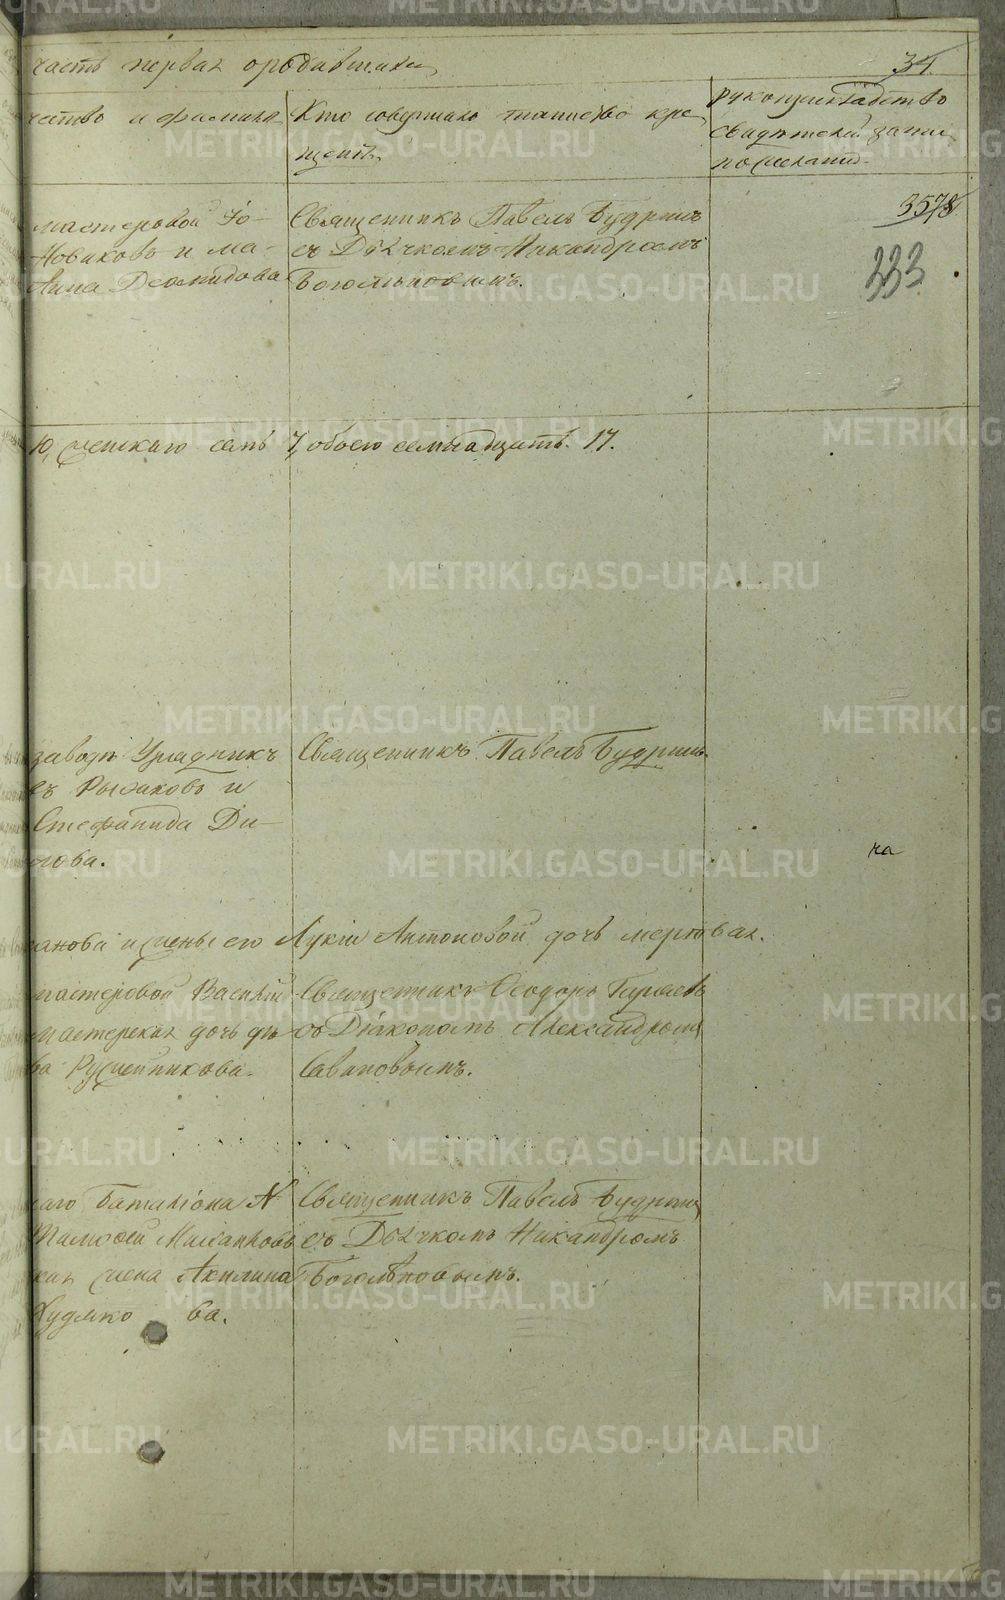 часть первая о родившихся
34.
чество и фамилия
Кто совершалъ таинство кре
щенія
рукоприкладство
свидѣтелей запи
по желанію.
мастеровой Іо-
Новиковъ и ма-
Анна Демидова
Священникъ Павелъ Будринъ
съ Дьячкомъ Никандромъ
Боголѣповымъ.
3578
333
10, женскаго семь 7, обоего семнадцать. 17.
завода Урядникъ
Рыбаковъ и
Стефанида Ди-
гова.
Священникъ Павелъ Будринъ.
на
анова и жены его Лукіи Антоновой дочь мертвая.
мастеровой Василій
мастерская дочь дѣ
ва Ружейникова.
Священникъ Ѳеодоръ Гиревъ
съ Діакономъ Александромъ
Савановымъ.
каго Баталіона №
Тимофей
жена Акилина
Худяко ва.
Священникъ Павелъ Будринъ
съ Дьячкомъ Никандромъ
Боголѣповымъ.
METRIKI.GASO-URAL.RU